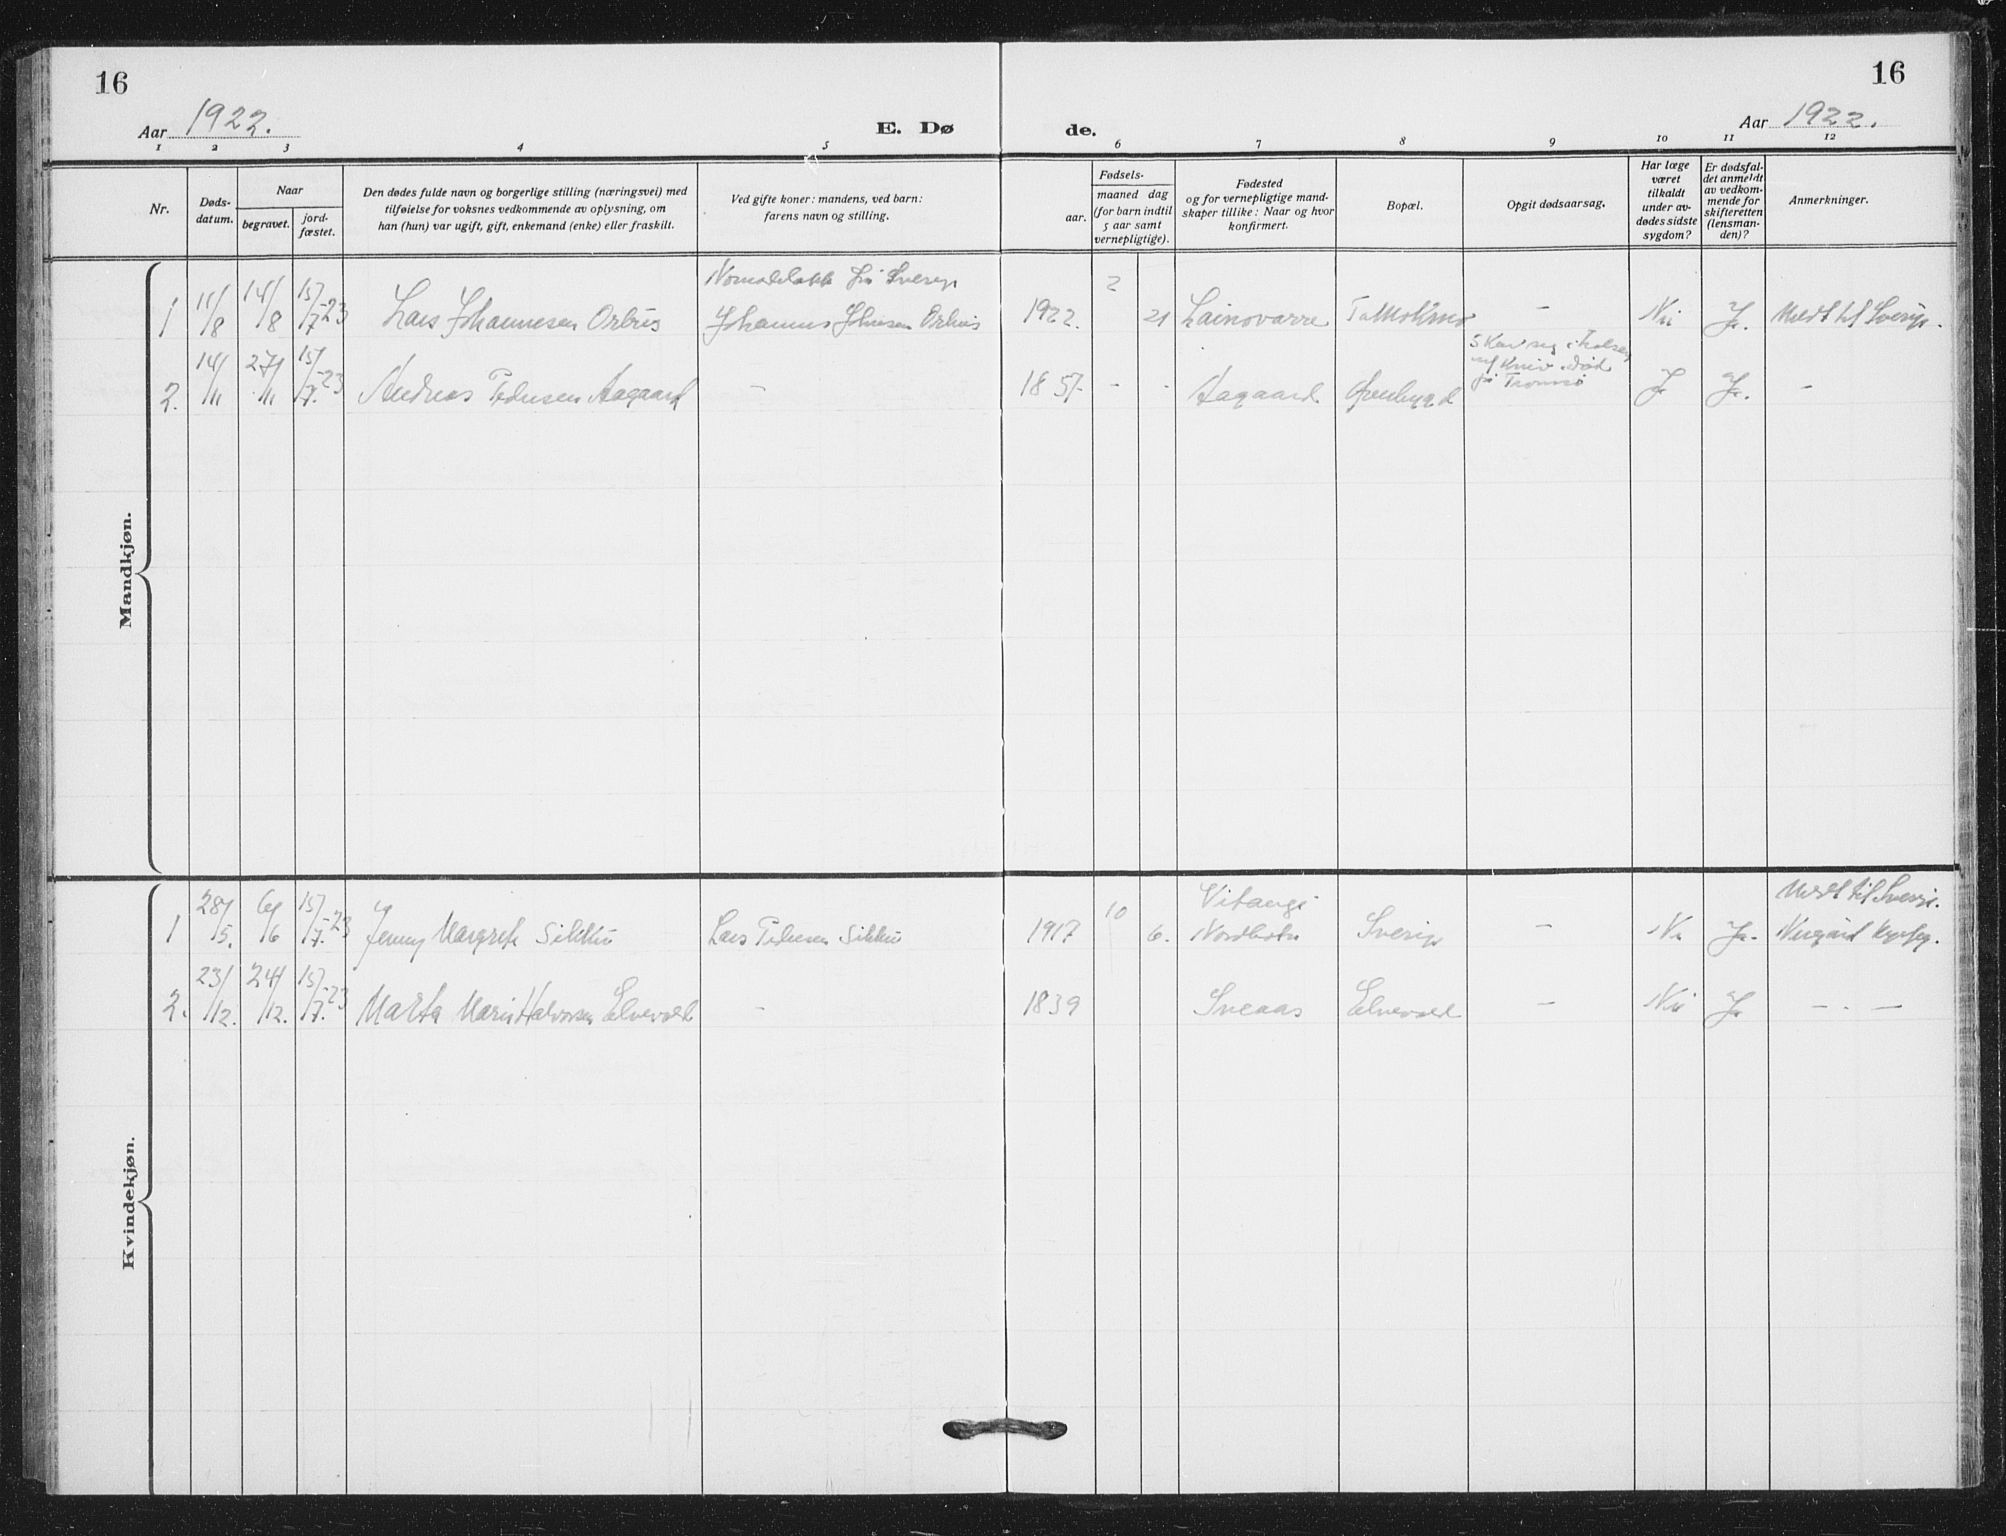 16
16
Aar 1922.
E. Dø
de.
Aar 1922.
1 2 3 4 5 6 7 8 9 10 11 12
Nr.
Døds-
datum.
Naar
begravet.
jord-
fæstet.
Den dødes fulde navn og borgerlige stilling (næringsvei) med
tilføielse for voksnes vedkommende av oplysning, om
han (hun) var ugift, gift, enkemand (enke) eller fraskilt.
Ved gifte koner: mandens, ved barn:
farens navn og stilling.
Fødsels-
aar.
maaned dag
(for barn indtil
5 aar samt
vernepligtige).
Fødested
og for vernepligtige mand-
skaper tillike: Naar og hvor
konfirmert.
Bopæl.
Opgit dødsaarsag.
Har læge
været
tilkaldt
under av-
dødes sidste
sygdom?
Er dødsfal-
det anmeldt
av vedkom-
mende for
skifteretten
(lensman-
den)?
Anmerkninger.
Mandkjøn.
1 11/8 14/8 15/7-23 Lars Johannesen Orbus Nomadelapp fra Sverige Johannes Orbus 1922. 2 21 Lainovarre Nei Ja. Meldt til Sverige.
2. 14/11 27/11 15/7-23 Andreas Pedersen Aagaard - 1857 - - Aagaard Øverbygd Skar seg i halsen med kniv. Død på Tromsø J Ja. -
Kvindekjøn.
1 28/5. 6/6 15/7-23 Jenny Margrete Sikku Lars Pedersen Sikku 1917 10 6. Vitangi Sverige - Nei Ja. Meldt til Sverige.
2. 23/12. 24/12. 15/7-23 Marta Marie Halvorsen Elvevold - 1839 Sveaas Elvevold - Nei Ja - . -